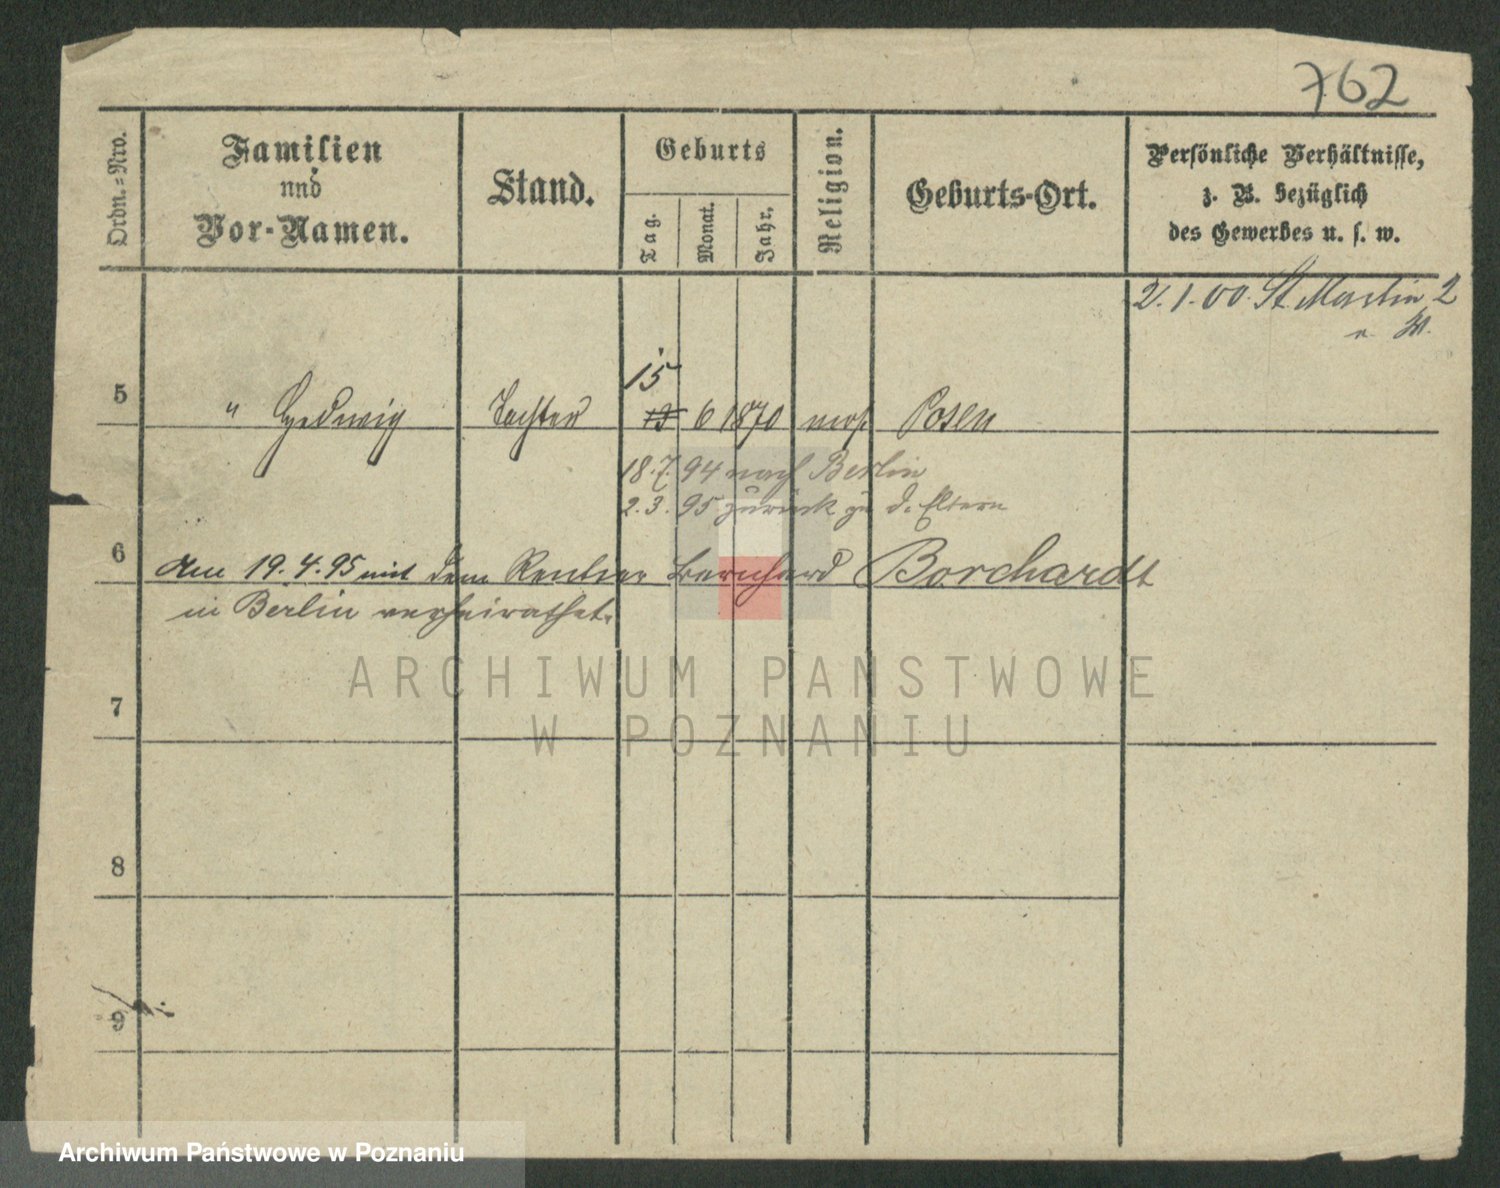 762
Ordn.-Nro.
Familien
und
Vor-Namen.
Stand.
Geburts
Tag.
Monat.
Jahr.
Religion.
Geburts-Ort.
Persönliche Verhältnisse,
z. B. bezüglich
des Gewerbes u. s. w.
2.1.00. St. Martin 2
15
5 " Hedwig Tochter 13 6 1870 mos. Posen
18.7.94 nach Berlin
2.3.95 zurück zu d. Eltern
6
Am 19.4.95 mit dem Rentier Bernhard Borchardt
in Berlin verheirathet.
7
8
9
ARCHIWUM PAŃSTWOWE
W POZNANIU
Archiwum Państwowe w Poznaniu